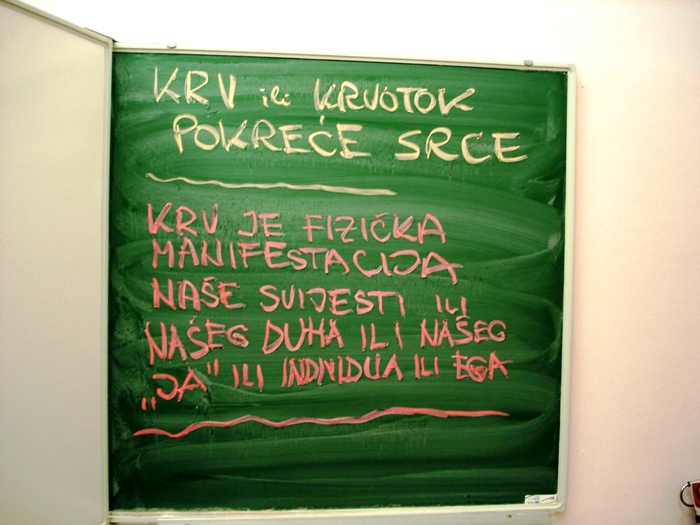 KRV ili KRVOTOK
POKREĆE SRCE
KRV JE FIZIČKA
MANIFESTACIJA
NAŠE SVIJESTI ILI
NAŠEG DUHA ILI NAŠEG
„JA" ILI INDIVIDUA ILI EGA